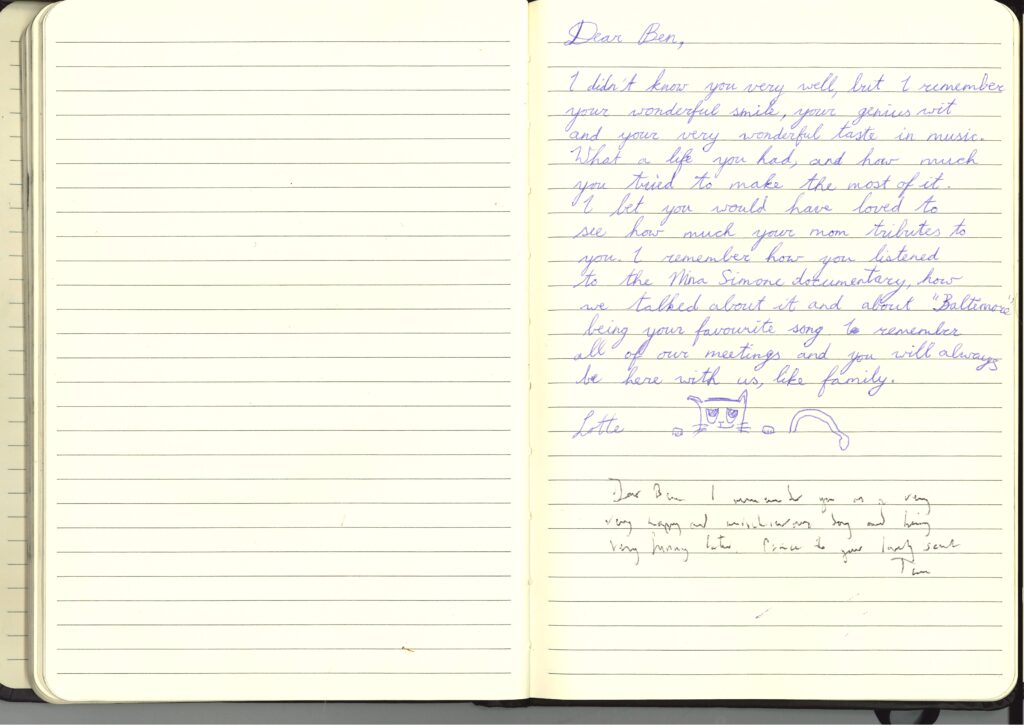 Dear Ben,
I didn't know you very well, but I remember
your wonderful smile, your genius wit
and your very wonderful taste in music.
What a life you had, and how much
you tried to make the most of it.
I bet you would have loved to
see how much your mom tributes to
you. I remember how you listened
to the Nina Simone documentary, how
we talked about it and about "Baltimore"
being your favourite song I remember
all of our meetings and you will always
be here with us, like family.
Lotte
Dear Ben I remember you as a very
very happy and mischievous boy and being
very funny later. Peace to your lovely soul